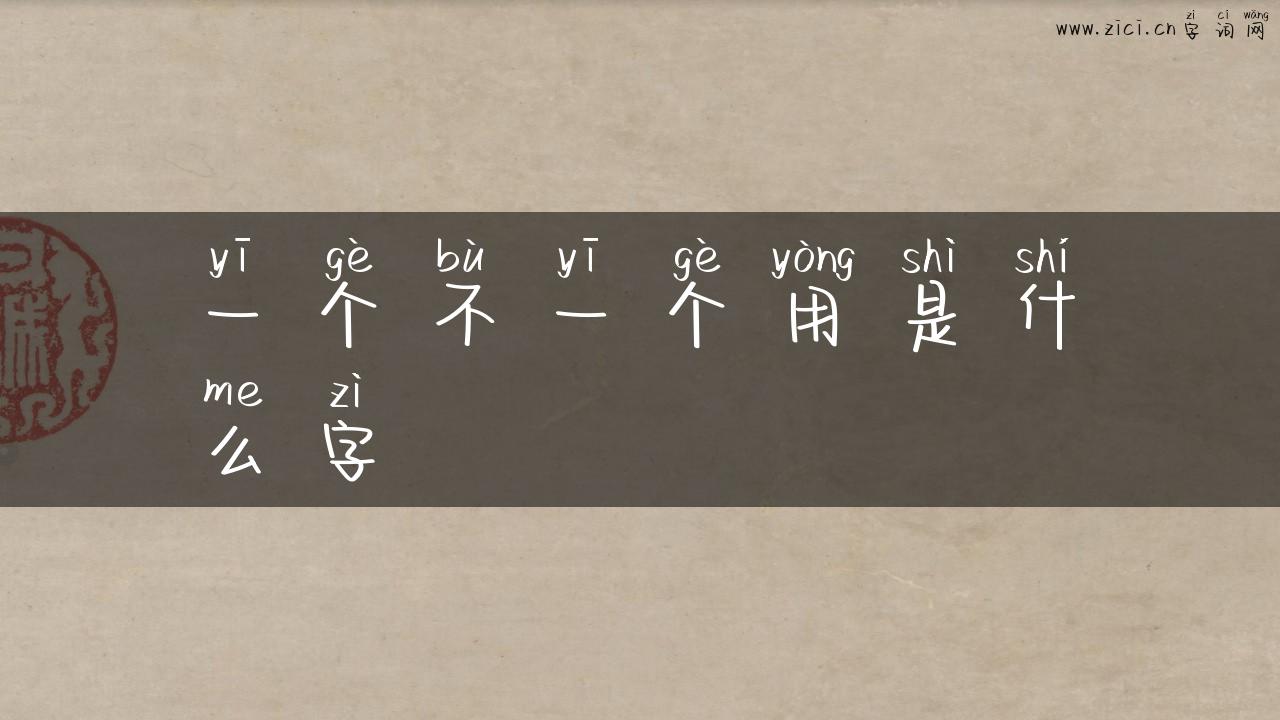 www.zici.cn zì cí wǎng
字词网
yī gè bù yī gè yòng shì shí
一个不一个用是什
me zì
么字